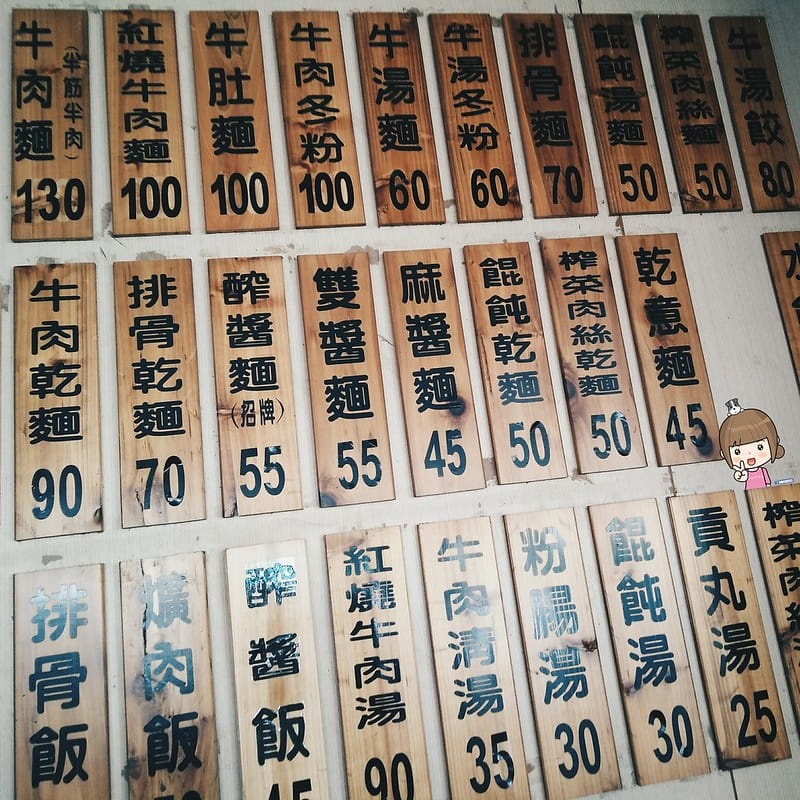 牛肉麵(半筋半肉)130
紅燒牛肉麵100
牛肚麵100
牛肉冬粉100
牛湯麵60
牛湯冬粉60
排骨麵70
餛飩湯麵50
榨菜肉絲麵50
牛湯餃80
牛肉乾麵90
排骨乾麵70
酢醬麵(招牌)55
雙醬麵55
麻醬麵45
餛飩乾麵50
榨菜肉絲乾麵50
乾意麵45
水
排骨飯
爌肉飯
酢醬飯
紅燒牛肉湯90
牛肉清湯35
粉腸湯30
餛飩湯30
貢丸湯25
榨菜肉絲